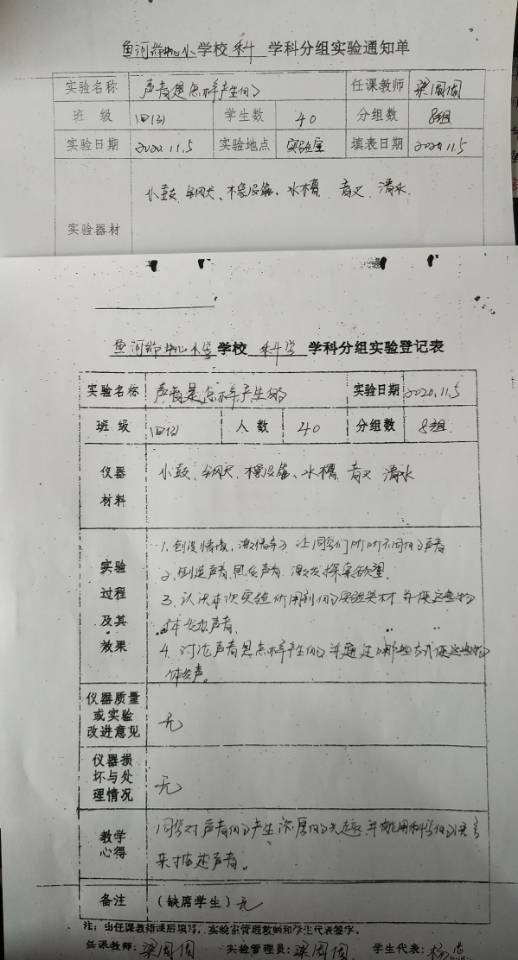 鱼河镇中心小学校 科 学科分组实验通知单
实验名称 声音是怎样产生的 任课教师 梁周周
班 级 四(3) 学生数 40 分组数 8组
实验日期 2020.11.5 实验地点 实验室 填表日期 2020.11.5
小鼓、钢尺、橡皮筋、水槽 音叉 清水
实验器材
鱼河镇中心小学 学校 科学 学科分组实验登记表
实验名称 声音是怎样产生的 实验日期 2020.11.5
班 级 四(3) 人 数 40 分组数 8组
仪器 小鼓、钢尺、橡皮筋、水槽、音叉 清水
材料
实验 1.创设情境,激情导入 让同学们听听不同的声音
2.制造声音,思考声音,激发探索欲望.
过程 3.认识本次实验所用到的实验器材,并使这些物
及其 体发出声音.
效果 4.讨论声音是怎样产生的,并通过哪些方式使这些物
体发声。
仪器质量
或实验 无
改进意见
仪器损
坏与处 无
理情况
教学 同学对声音的产生 浓厚的兴趣,并能用科学的语言
心得 来描述声音。
备注 (缺席学生)无
注:由任课教师课后填写,实验室管理教师和学生代表签字。
任课教师:梁周周 实验管理员:梁周周 学生代表:杨